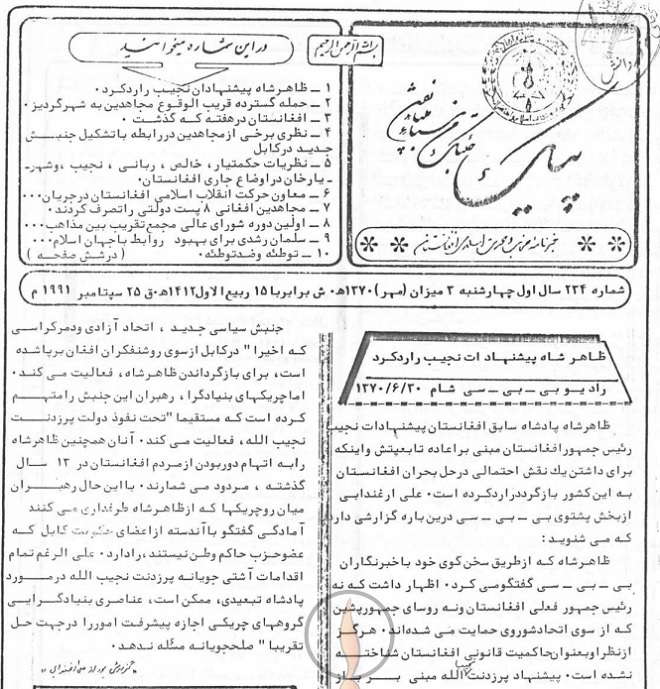 بسم الله الرحمن الرحیم
پیام
خبرنامه حزب وحدت اسلامی افغانستان
در این شماره میخوانید
۱ ــ ظاهرشاه پیشنهادان نجیب را رد کرد ۰
۲ ــ حمله گسترده قریب الوقوع مجاهدین به شهر گردیز ۰
۳ ــ افغانستان در هفته که گذشت ۰
۴ ــ نظری برخی از مجاهدین در رابطه با تشکیل جنبش
جدید در کابل
۵ ــ نظریات حکمتیار ، خالص ، ربانی ، نجیب ، وشهر ــ
ـ یارخان در اوضاع جاری افغانستان ۰
۶ ــ معاون حرکت انقلاب اسلامی افغانستان در جریان ۰۰۰
۷ ــ مجاهدین افغانی ۸ پست دولتی را تصرف کردند ۰
۸ ــ اولین دوره شورای عالی مجمع تقریب بین مذاهب ۰۰۰
۹ ــ سلمان رشدی برای بهبود روابط با جهان اسلام ۰۰۰
۱۰ ــ توطئه وضد توطئه ۰ ( در شش صفحه )
شماره ۲۳۴ سال اول چهارشنبه ۳ میزان (مهر) ۱۳۷۰ه‍۰ش برابر با ۱۵ ربیع الاول ۱۴۱۲ه‍۰ق ۲۵ سپتامبر ۱۹۹۱ م
ظاهر شاه پیشنهاد ات نجیب را رد کرد
راد یو بی ــ بی ــ سی شام ۱۳۷۰/۶/۳۰
ظاهرشاه پادشاه سابق افغانستان پیشنهادات نجیب
رئیس جمهور افغانستان مبنی بر اعاده تابعیتش واینکه
برای داشتن یك نقش احتمالی در حل بحران افغانستان
به این کشور باز گردد رد کرده است ۰ علی ارغندابی
از بخش پشتوی بی ــ بی ــ سی درین باره گزارشی دارد
که می شنوید :
ظاهرشاه که از طریق سخن گوی خود با خبرنگاران
بی ــ بی ــ سی گفتگو می کرد ۰ اظهار داشت که نه
رئیس جمهور فعلی افغانستان ونه روسای جمهور پشین
که از سوی اتحاد شوروی حمایت می شده اند ۰ هرگز
از نظر او بعنوان حاکمیت قانونی افغانستان شناخته
نشده است ۰ پیشنهاد پرزدنت نجیب الله مبنی بر باز
جنبش سیاسی جدید ، اتحاد آزادی ودمرکراسی
که اخیرا " در کابل از سوی روشنفکران افغان برپا شده
است ، برای بازگرداندن ظاهرشاه ، فعالیت می کند ۰
اما چریکهای بنیادگرا ، رهبران این جنبش را متهم
کرده است که مستقیما " تحت نفوذ دولت پرزدنت
نجیب الله ، فعالیت می کند ۰ آنان همچنین ظاهرشاه
را به اتهام دور بودن از مردم افغانستان در ۱۳ سال
گذشته ، مردود می شمارند ۰ با این حال رهبران
میان رو چریکها که از ظاهرشاه طرفداری می کنند
آمادگی گفتگو با آندسته از اعضای حکومت کابل که
عضو حزب حاکم وطن نیستند ، را دارد ۰ علی الرغم تمام
اقدامات آشتی جویانه پرزدنت نجیب الله در مورد
پادشاه تبعیدی ، ممکن است ، عناصری بنیادگرایی
گروههای چریکی اجازه پیشرفت امور را در جهت حل
تقریبا " صلحجویانه مسئله ندهد ۰